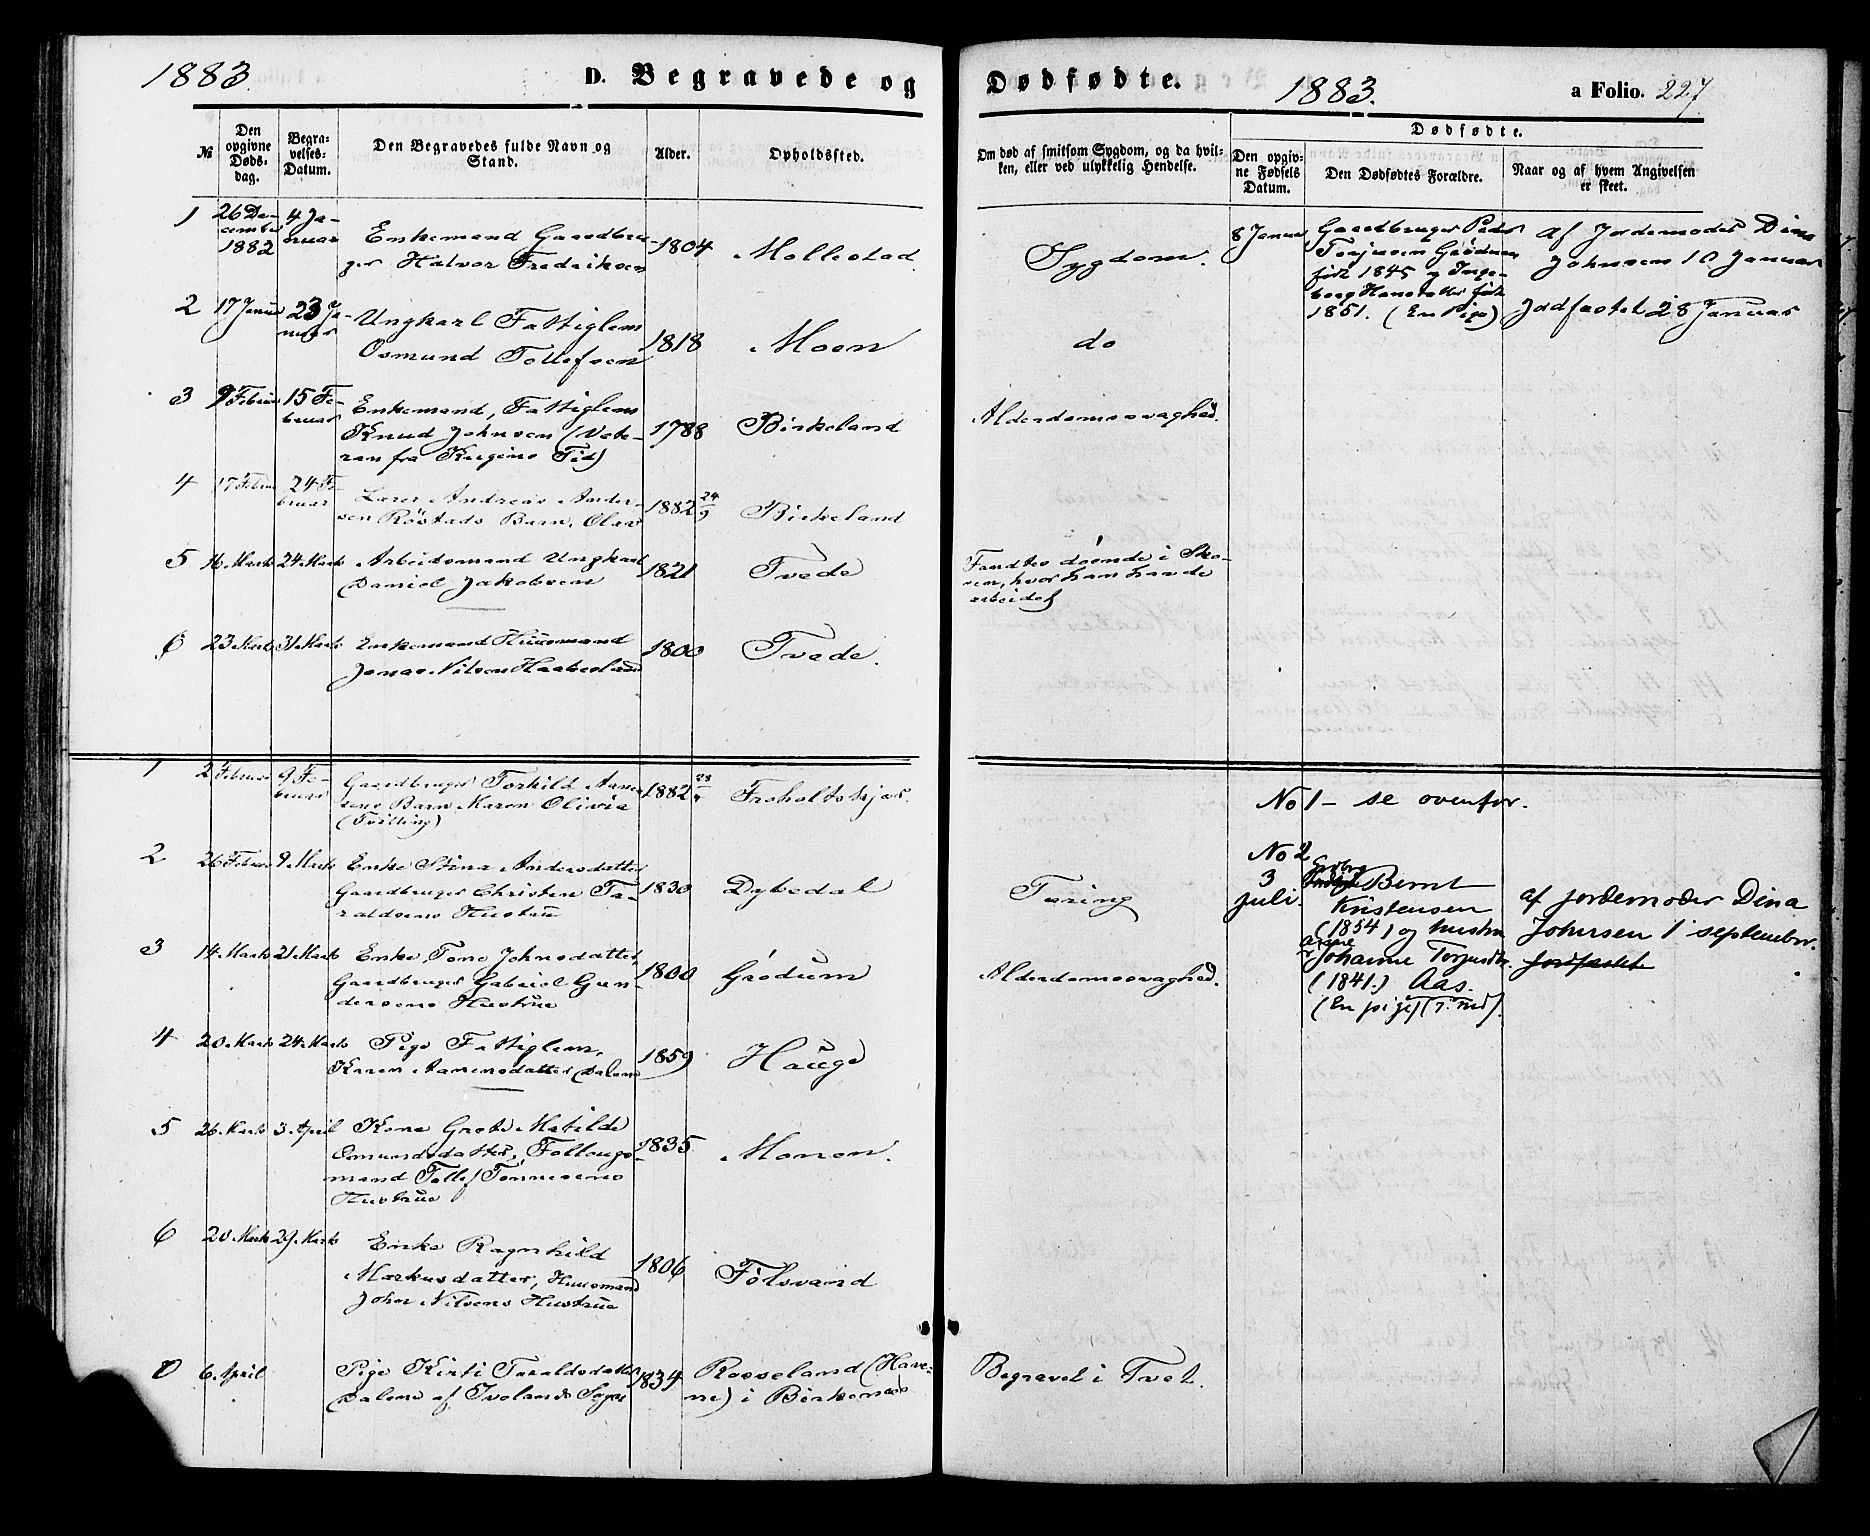 1883.
D. Begravede og
Dødfødte.
1883.
a Folio. 227
№
Den opgivne Døds-dag.
Begra-velses-Datum.
Den Begravedes fulde Navn og Stand.
Alder.
Opholdssted.
Om død af smitsom Sygdom, og da hvil-ken, eller ved ulykkelig Hendelse.
Dødfødte.
Den opgiv-ne Fødsels Datum.
Den Dødfødtes Forældre.
Naar og af hvem Angivelsen er skeet.
1 26 De-cember 1882 4 Ja-nuar Enkemand Gaardbru-ger Halvor Fredriksen 1804 Mollestad Sygdom.
8 Januar Gaardbruger Peder Terjesen Grødum født 1845 og Inge-borg Hansdatter født 1851. (En Pige) af Jordemoder Dina Johnsen 10 Januar
Jodfæstet 28 Januar
2 17 Januar 23 Ja-nuar Ungkarl Fattiglem Osmund Tollefsen 1818 Moen do
3 9 Februar 15 Fe-bruar Enkemand, Fattiglem Knud Johnsen (Vete-ran fra Krigens Tid) 1788 Birkeland Alderdomssvaghed.
4 17 Februar 24 Fe-bruar Lærer Andreas Ander-sen Røstads Barn, Olav 1882 24/9 Birkeland
5 16 Marts 24 Marts Arbeidsmand Ungkarl Daniel Jakobsen 1821 Tvede Fandtes døende i Sko-ven, hvor han havde arbeidet
6 23 Marts 31 Marts Enkemand Huusmand Jonas Nilsen Haabesland 1800 Tvede.
1 2 Februar 9 Fe-bruar Gaardbruger Torkild Aanen-sens Barn Maren Olivia (Tvilling) 1882 Froholtskjær.
No 1 - se ovenfor.
2 26 Februar 9 Marts Enke Stina Andersdatter Gaardbruger Christen Ta-raldsens Hustrue 1830 Dybedal Tæring
No 2
3 juli. Grdbrg Bernt Kristensen (1854) og hustru Johanne Torjusdtr. (1841.) Aas. (En pige) af jordemoder Dina Johnsen 1 september. Jordfæstet
3 14 Marts 21 Marts Enke, Tone Johnsdatter, Gaardbruger Gabriel Gun-dersens Hustrue 1800 Grødum Alderdomssvaghed.
4 20 Marts 24 Marts Pige Fattiglem, Karen Aanensdatter Dalene 1859 Hauge
5 26 Marts 3 April Kone Grete Matilde Osmundsdatter, Føllougs-mand Tollef Tønnesens Hustrue 1835 Monen.
6 20 Marts 29 Marts Enke Ragnhild Markusdatter, Huusmand John Nilsens Hustrue 1806 Fölsvand
0 6 April Pige Kirsti Taraldsdatter Dalene af Ivelands Sogn 1834 Rosseland (Have-ne) i Birkenes Begravet i Tvet.